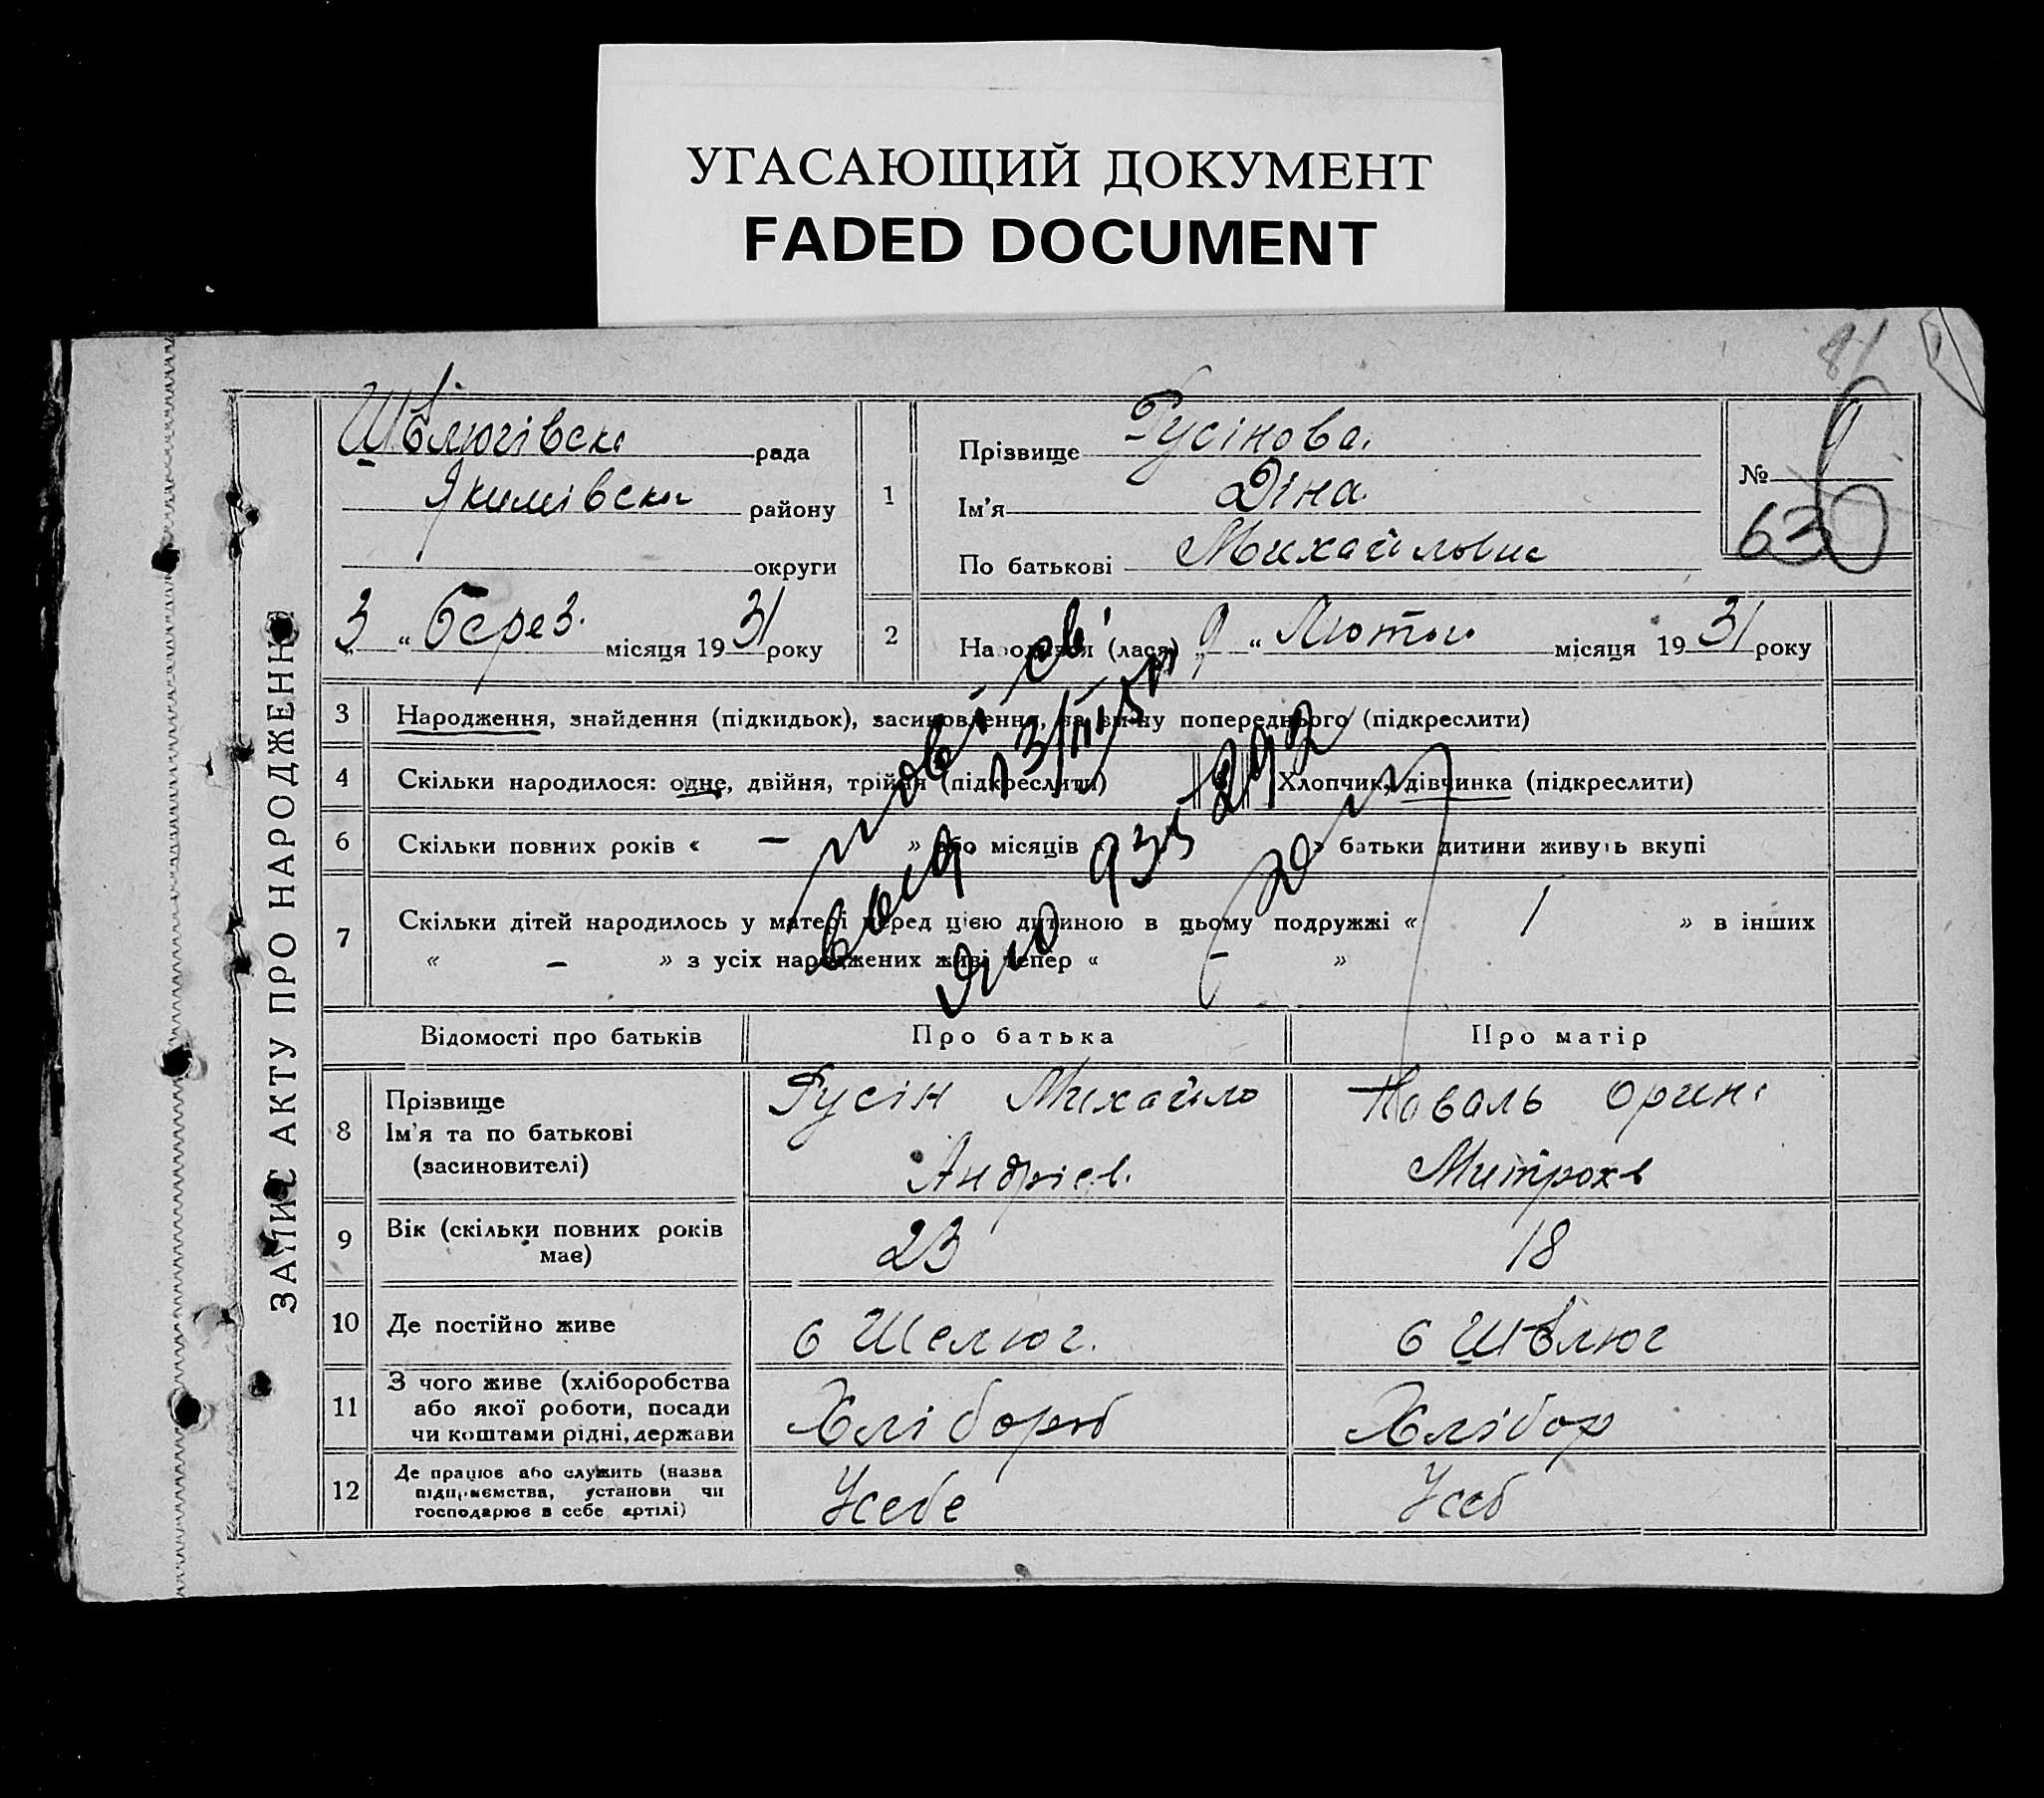 УГАСАЮЩИЙ ДОКУМЕНТ
FADED DOCUMENT
81
ЗАПИС АКТУ ПРО НАРОДЖЕННЯ
Шелюгівска рада
Якимівска району
округи
3 " берез. місяця 1931 року
1
Прізвище Русінова
Ім'я Діна
По батькові Михайловна
№ 9
63
2 Народився (лася) „ 9 " Лютого місяця 1931 року
3 Народження, знайдення (підкидьок), засиновлення, на зміну попереднього (підкреслити)
4 Скільки народилося: одне, двійня, трійня (підкреслити) Хлопчик, дівчинка (підкреслити)
6 Скільки повних років « — » або місяців « » батьки дитини живуть вкупі
7 Скільки дітей народилось у матері перед цією дитиною в цьому подружжі « 1 » в інших
« — » з усіх народжених живі тепер « — »
Відомості про батьків Про батька Про матір
8 Прізвище Ім'я та по батькові (засиновителі) Русін Михайло Андрієв. Коваль Орина Митрохв
9 Вік (скільки повних років має) 23 18
10 Де постійно живе с Шелюг. с Шелюг
11 З чого живе (хліборобства або якої роботи, посади чи коштами рідні, держави Хлібороб Хлібор
12 Де працює або служить (назва підприємства, установи чи господарює в себе артілі) Усебе Усеб